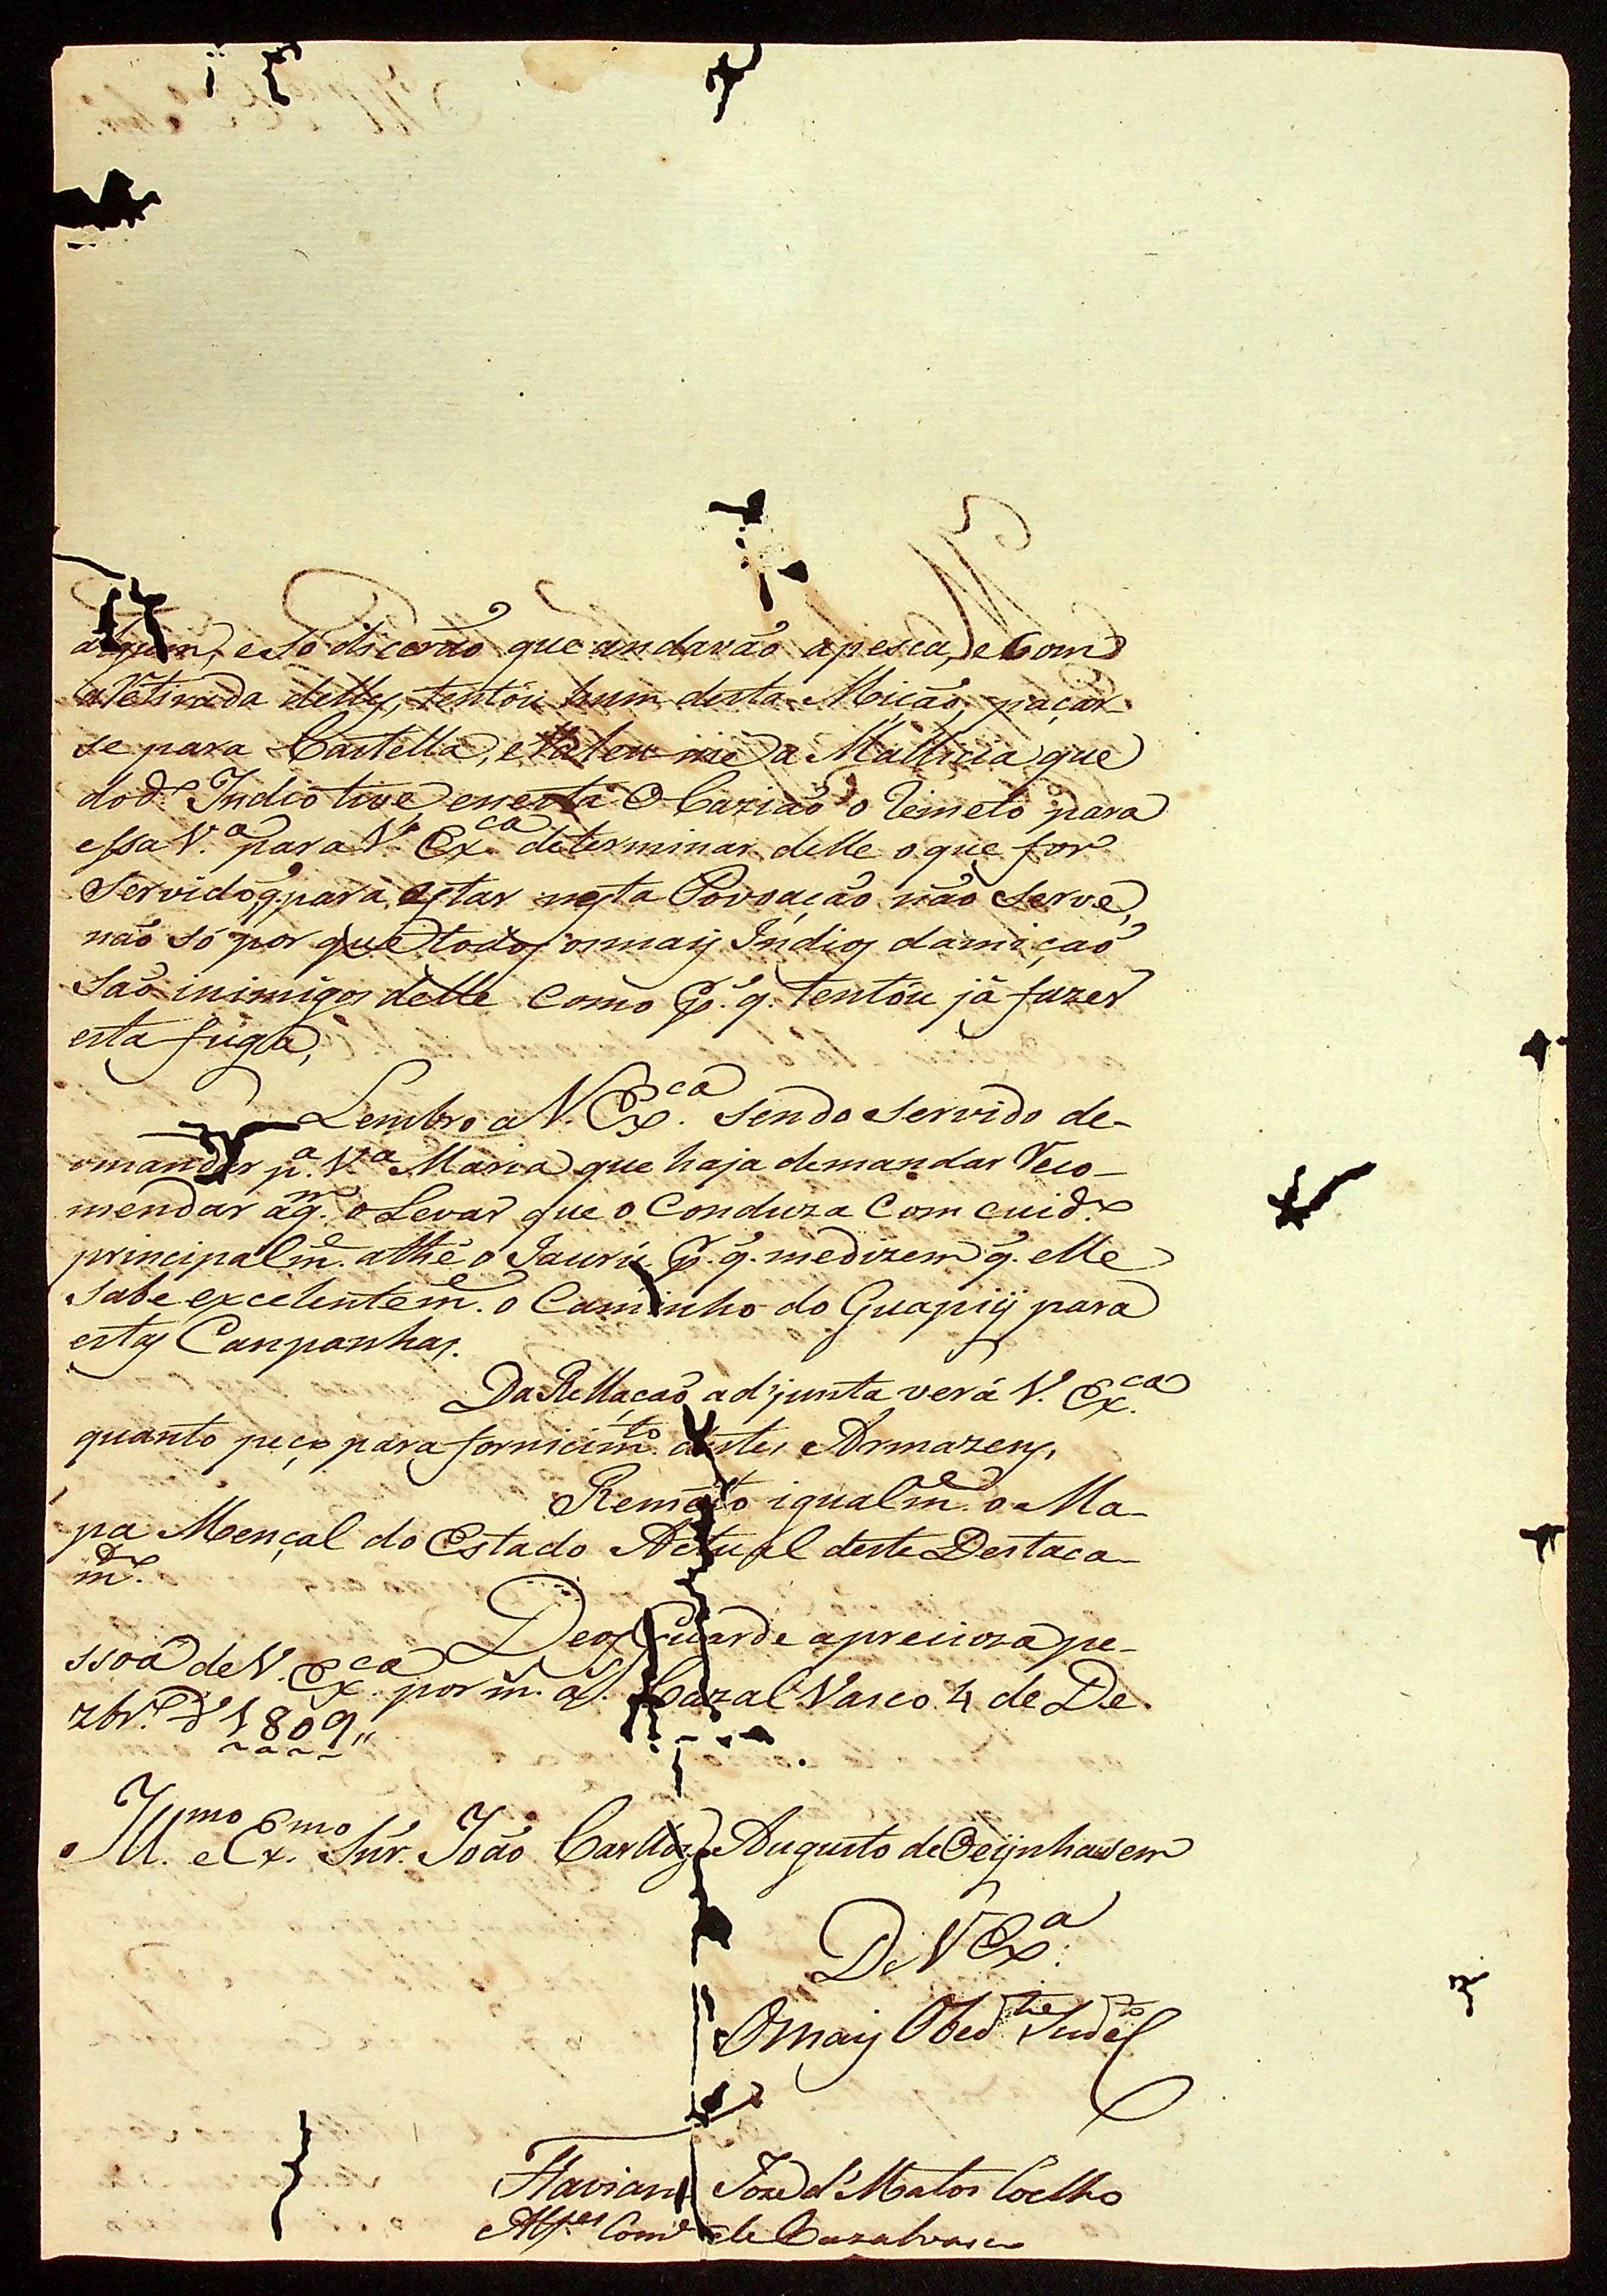 alguem, e só dicerão que andavão a pesca, e Com
a Retirada delles, tentou hum desta Mição, paçar-
se para Castella, e Valeu-me a Mallicia que
do d.º Indio tive, e nesta Ocazião o Remeto para
essa V.ª para V. Ex.ca determinar delle o que for
Servido q. para estar nesta Povoação não Serve,
não só por que todos os mays Indios da mição
São inimigos delle Como p.r q. tentou já fazer
esta fuga,
Lembro a V. Ex.ca sendo Servido de-
o mandar p.a V.a Maria que haja de mandar Reco-
mendar a q.m o Levar que o Conduza Com cuid.º
principalm.e athé o Jaurú p.r q. me dizem q. elle
Sabe excelentem.e o Caminho do Guapiy para
estas Canpanhas.
Da Rellação ad'junta verá V. Ex.ca
quanto peço para fornicim.to destes Armazens,
Remeto igualm.e o Ma-
pa Mençal do Estado Actual deste Destaca-
m.to
Deos Guarde a precioza pe-
ssoa de V. Ex.ca por m. a.s Cazal Vasco 4 de De-
zbr.º d' 1809"
Ill.mo e Ex.mo Snr. João Carllos Augusto de Oeijnhausem
De V Ex.a
O mais Obed.te Sud.to
Flaviano Joze d' Matos Coelho
Alf.es Com.e de Cazalvasco